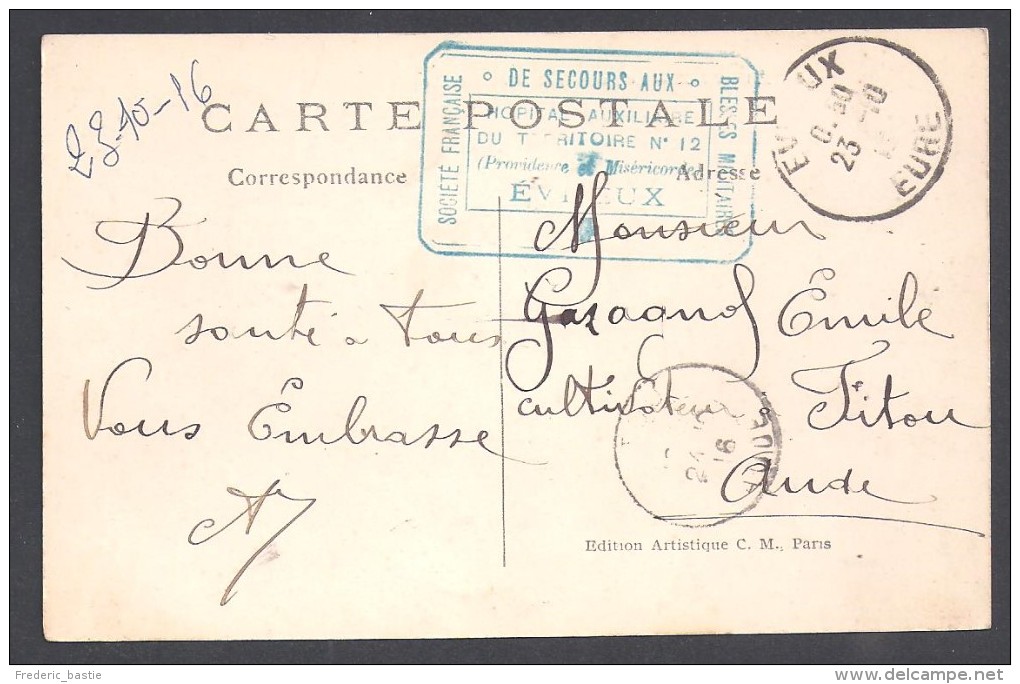 23-10-16
CARTE POSTALE
Correspondance
Adresse
SOCIÉTÉ FRANÇAISE
DE SECOURS AUX
BLESSÉS MILITAIRES
HOPITAL AUXILIAIRE
DU TERRITOIRE N° 12
(Providence et Miséricorde)
ÉVREUX
EVREUX
23 10
EURE
Bonne
santé à tous
Vous Embrasse
Monsieur
Emile
cultivateur
Fitou
Aude
24
16
AUDE
Edition Artistique C. M., Paris
Frederic_bastie
delcampe.net